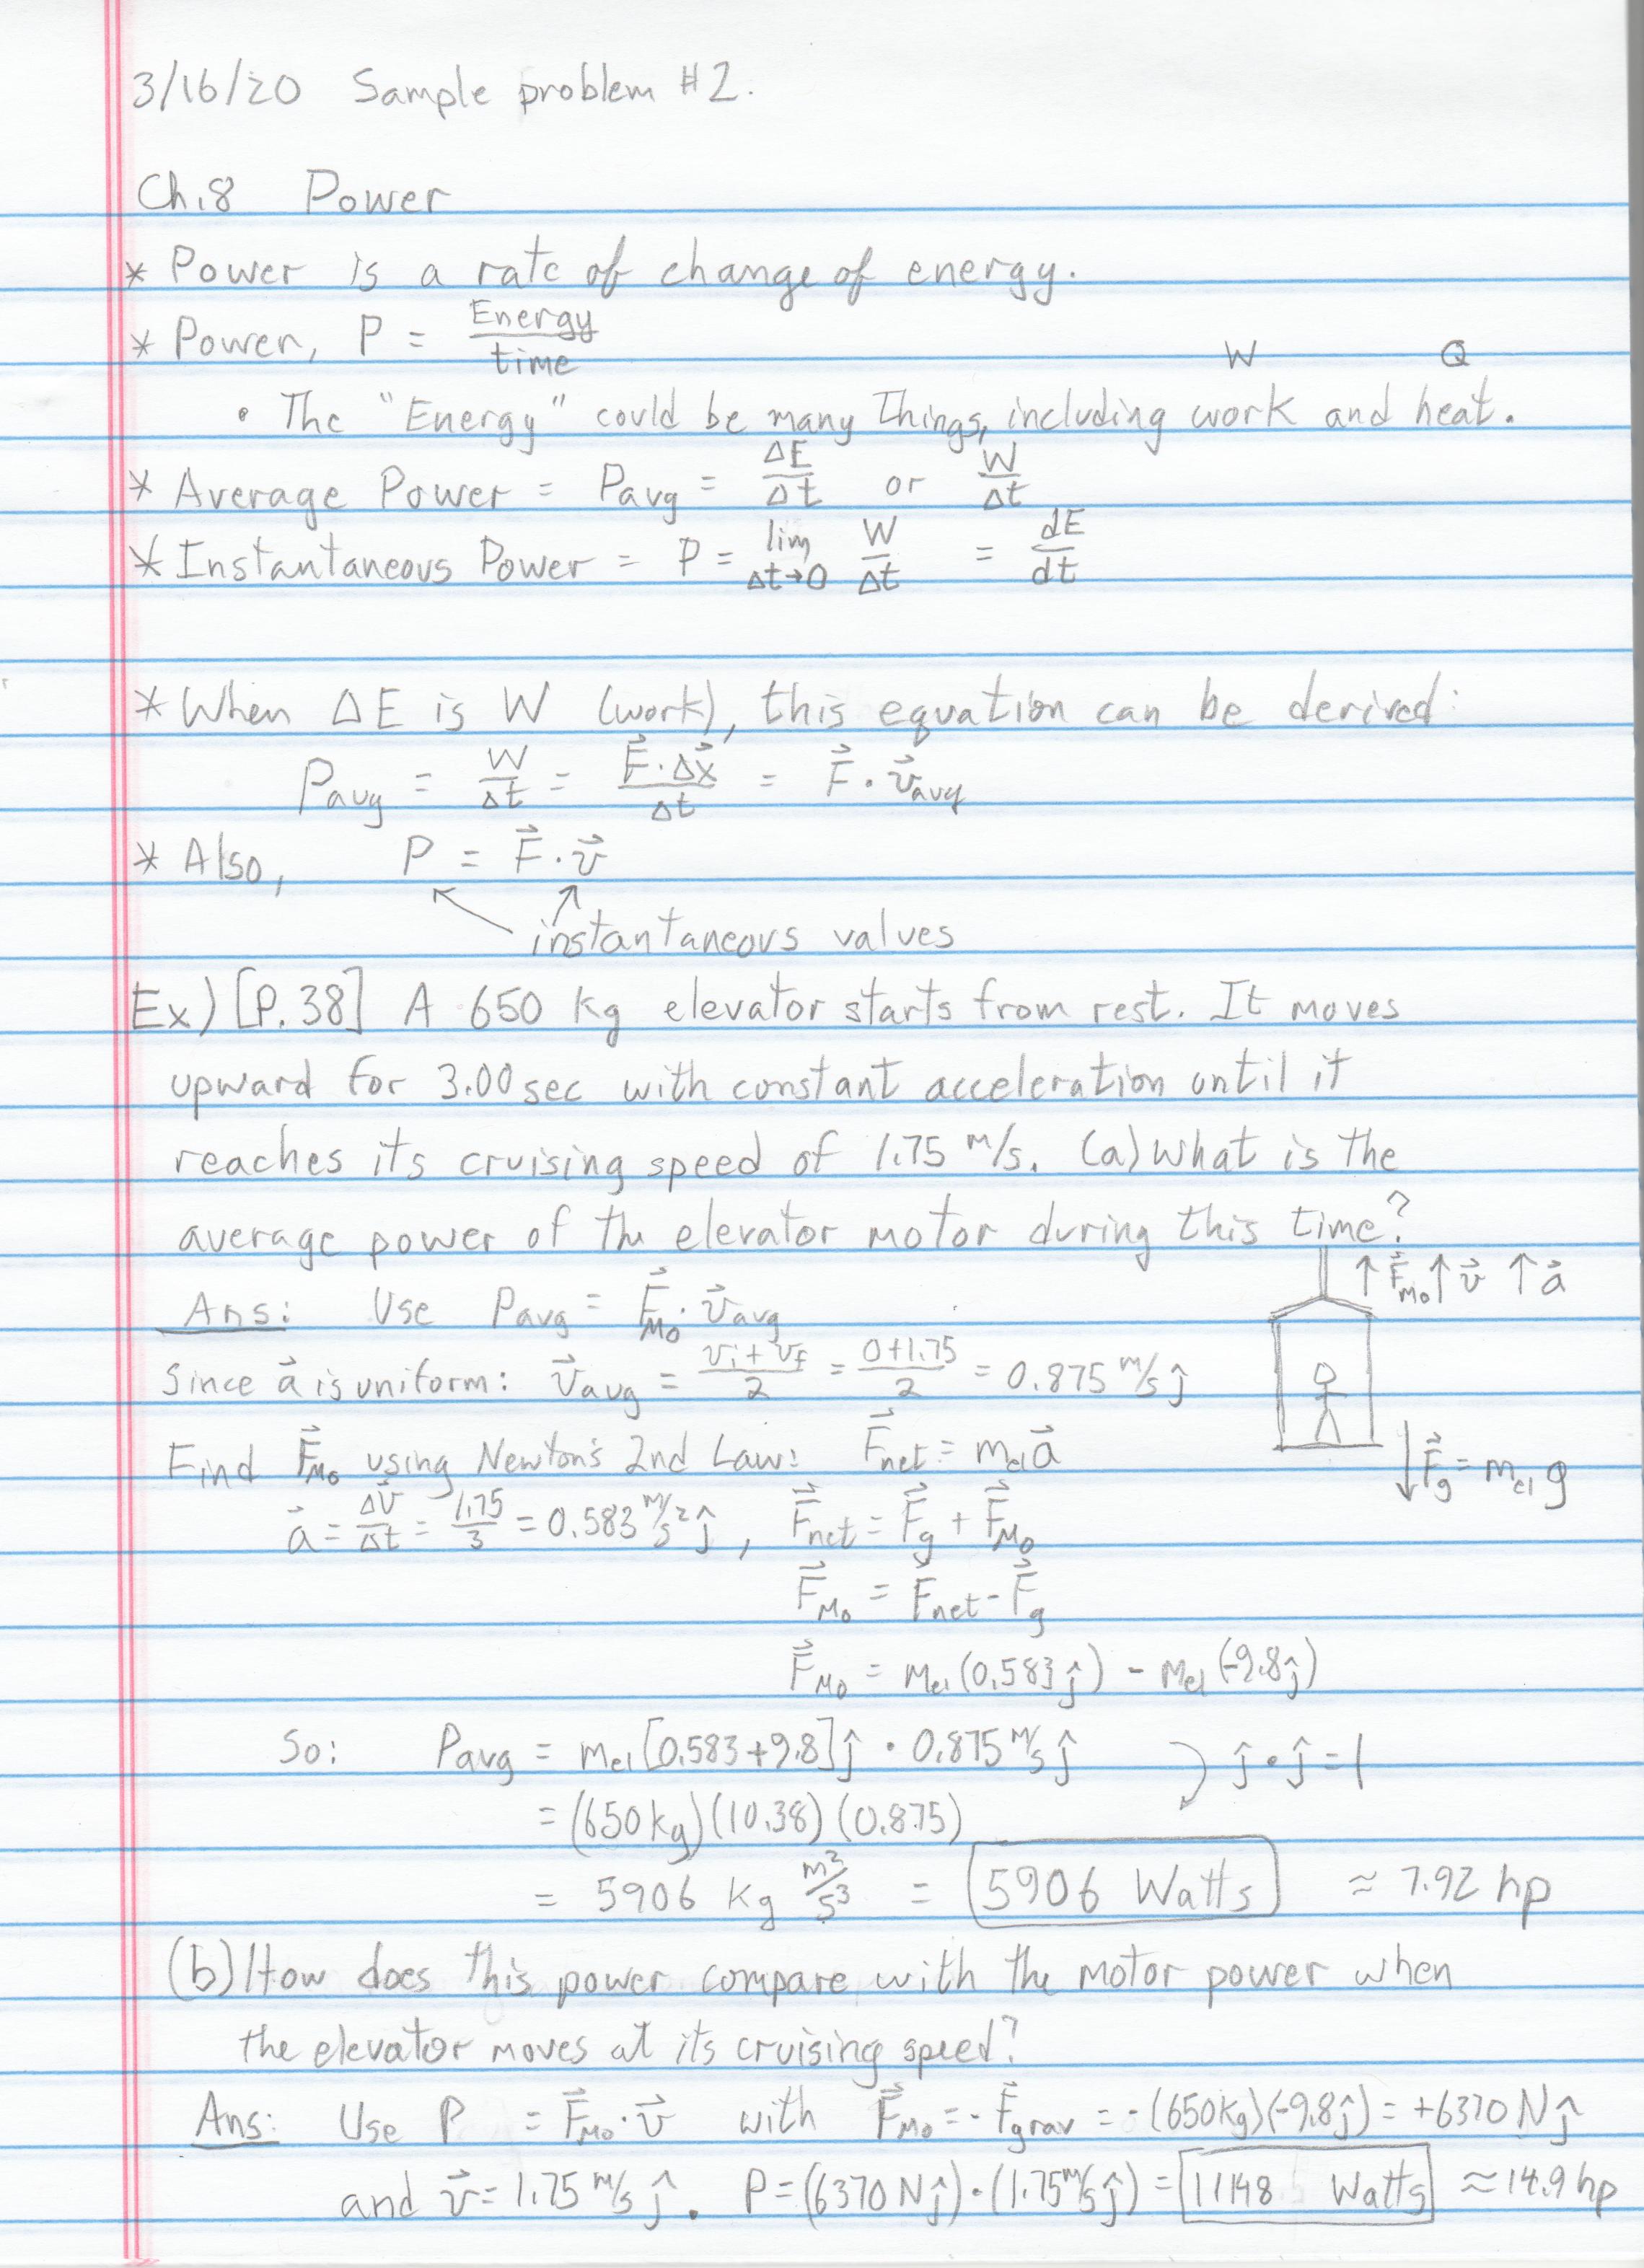 3/16/20 Sample problem #2.
Ch.8 Power
* Power is a rate of change of energy.
* Power, P = Energy/time
W Q
• The "Energy" could be many things, including work and heat.
* Average Power = Pavg = ΔE/Δt or W/Δt
* Instantaneous Power = P = lim Δt→0 W/Δt = dE/dt
* When ΔE is W (work), this equation can be derived:
Pavg = W/Δt = F⃗·Δx⃗/Δt = F⃗·v⃗avg
* Also, P = F⃗·v⃗
instantaneous values
Ex) [P. 38] A 650 kg elevator starts from rest. It moves
upward for 3.00 sec with constant acceleration until it
reaches its cruising speed of 1.75 m/s. (a) What is the
average power of the elevator motor during this time?
↑F⃗Mo ↑v⃗ ↑a⃗
Ans: Use Pavg = F⃗Mo·v⃗avg
Since a⃗ is uniform: v⃗avg = (vi + vf)/2 = (0+1.75)/2 = 0.875 m/s ĵ
Find F⃗Mo using Newton's 2nd Law: F⃗net = mel a⃗
↓F⃗g = mel g
a⃗ = Δv⃗/Δt = 1.75/3 = 0.583 m/s² ĵ, F⃗net = F⃗g + F⃗Mo
F⃗Mo = F⃗net - F⃗g
F⃗Mo = mel (0.583 ĵ) - mel (-9.8 ĵ)
So: Pavg = mel [0.583+9.8] ĵ · 0.875 m/s ĵ ĵ·ĵ=1
= (650 kg)(10.38)(0.875)
= 5906 kg m²/s³ = 5906 Watts ≈ 7.92 hp
(b) How does this power compare with the motor power when
the elevator moves at its cruising speed?
Ans: Use P = F⃗Mo·v⃗ with F⃗Mo = -F⃗grav = -(650kg)(-9.8ĵ) = +6370 N ĵ
and v⃗ = 1.75 m/s ĵ. P = (6370 N ĵ)·(1.75 m/s ĵ) = 11148 Watts ≈ 14.9 hp